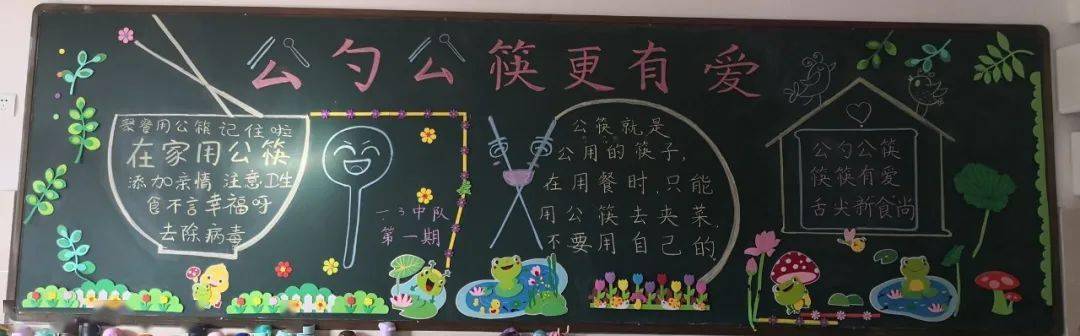 公勺公筷更有爱
聚餐用公筷 记住啦
在家用公筷
添加亲情 注意卫生
食不言幸福呀
去除病毒
一.3中队
第一期
公筷就是
公用的筷子,
在用餐时,只能
用公筷去夹菜,
不要用自己的
公勺公筷
筷筷有爱
舌尖新食尚